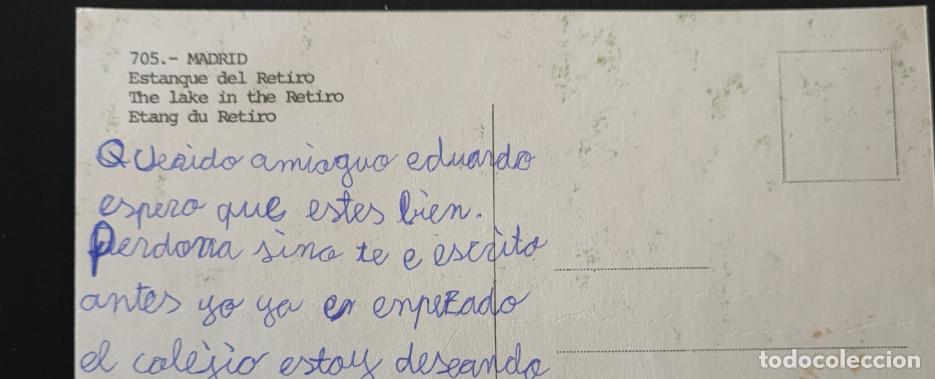 705.- MADRID
Estanque del Retiro
The lake in the Retiro
Etang du Retiro
Querido amiaguo eduardo
espero que estes bien.
Perdona sino te e escrito
antes yo ya en enpezado
el colegio estoy deseando
todocoleccion